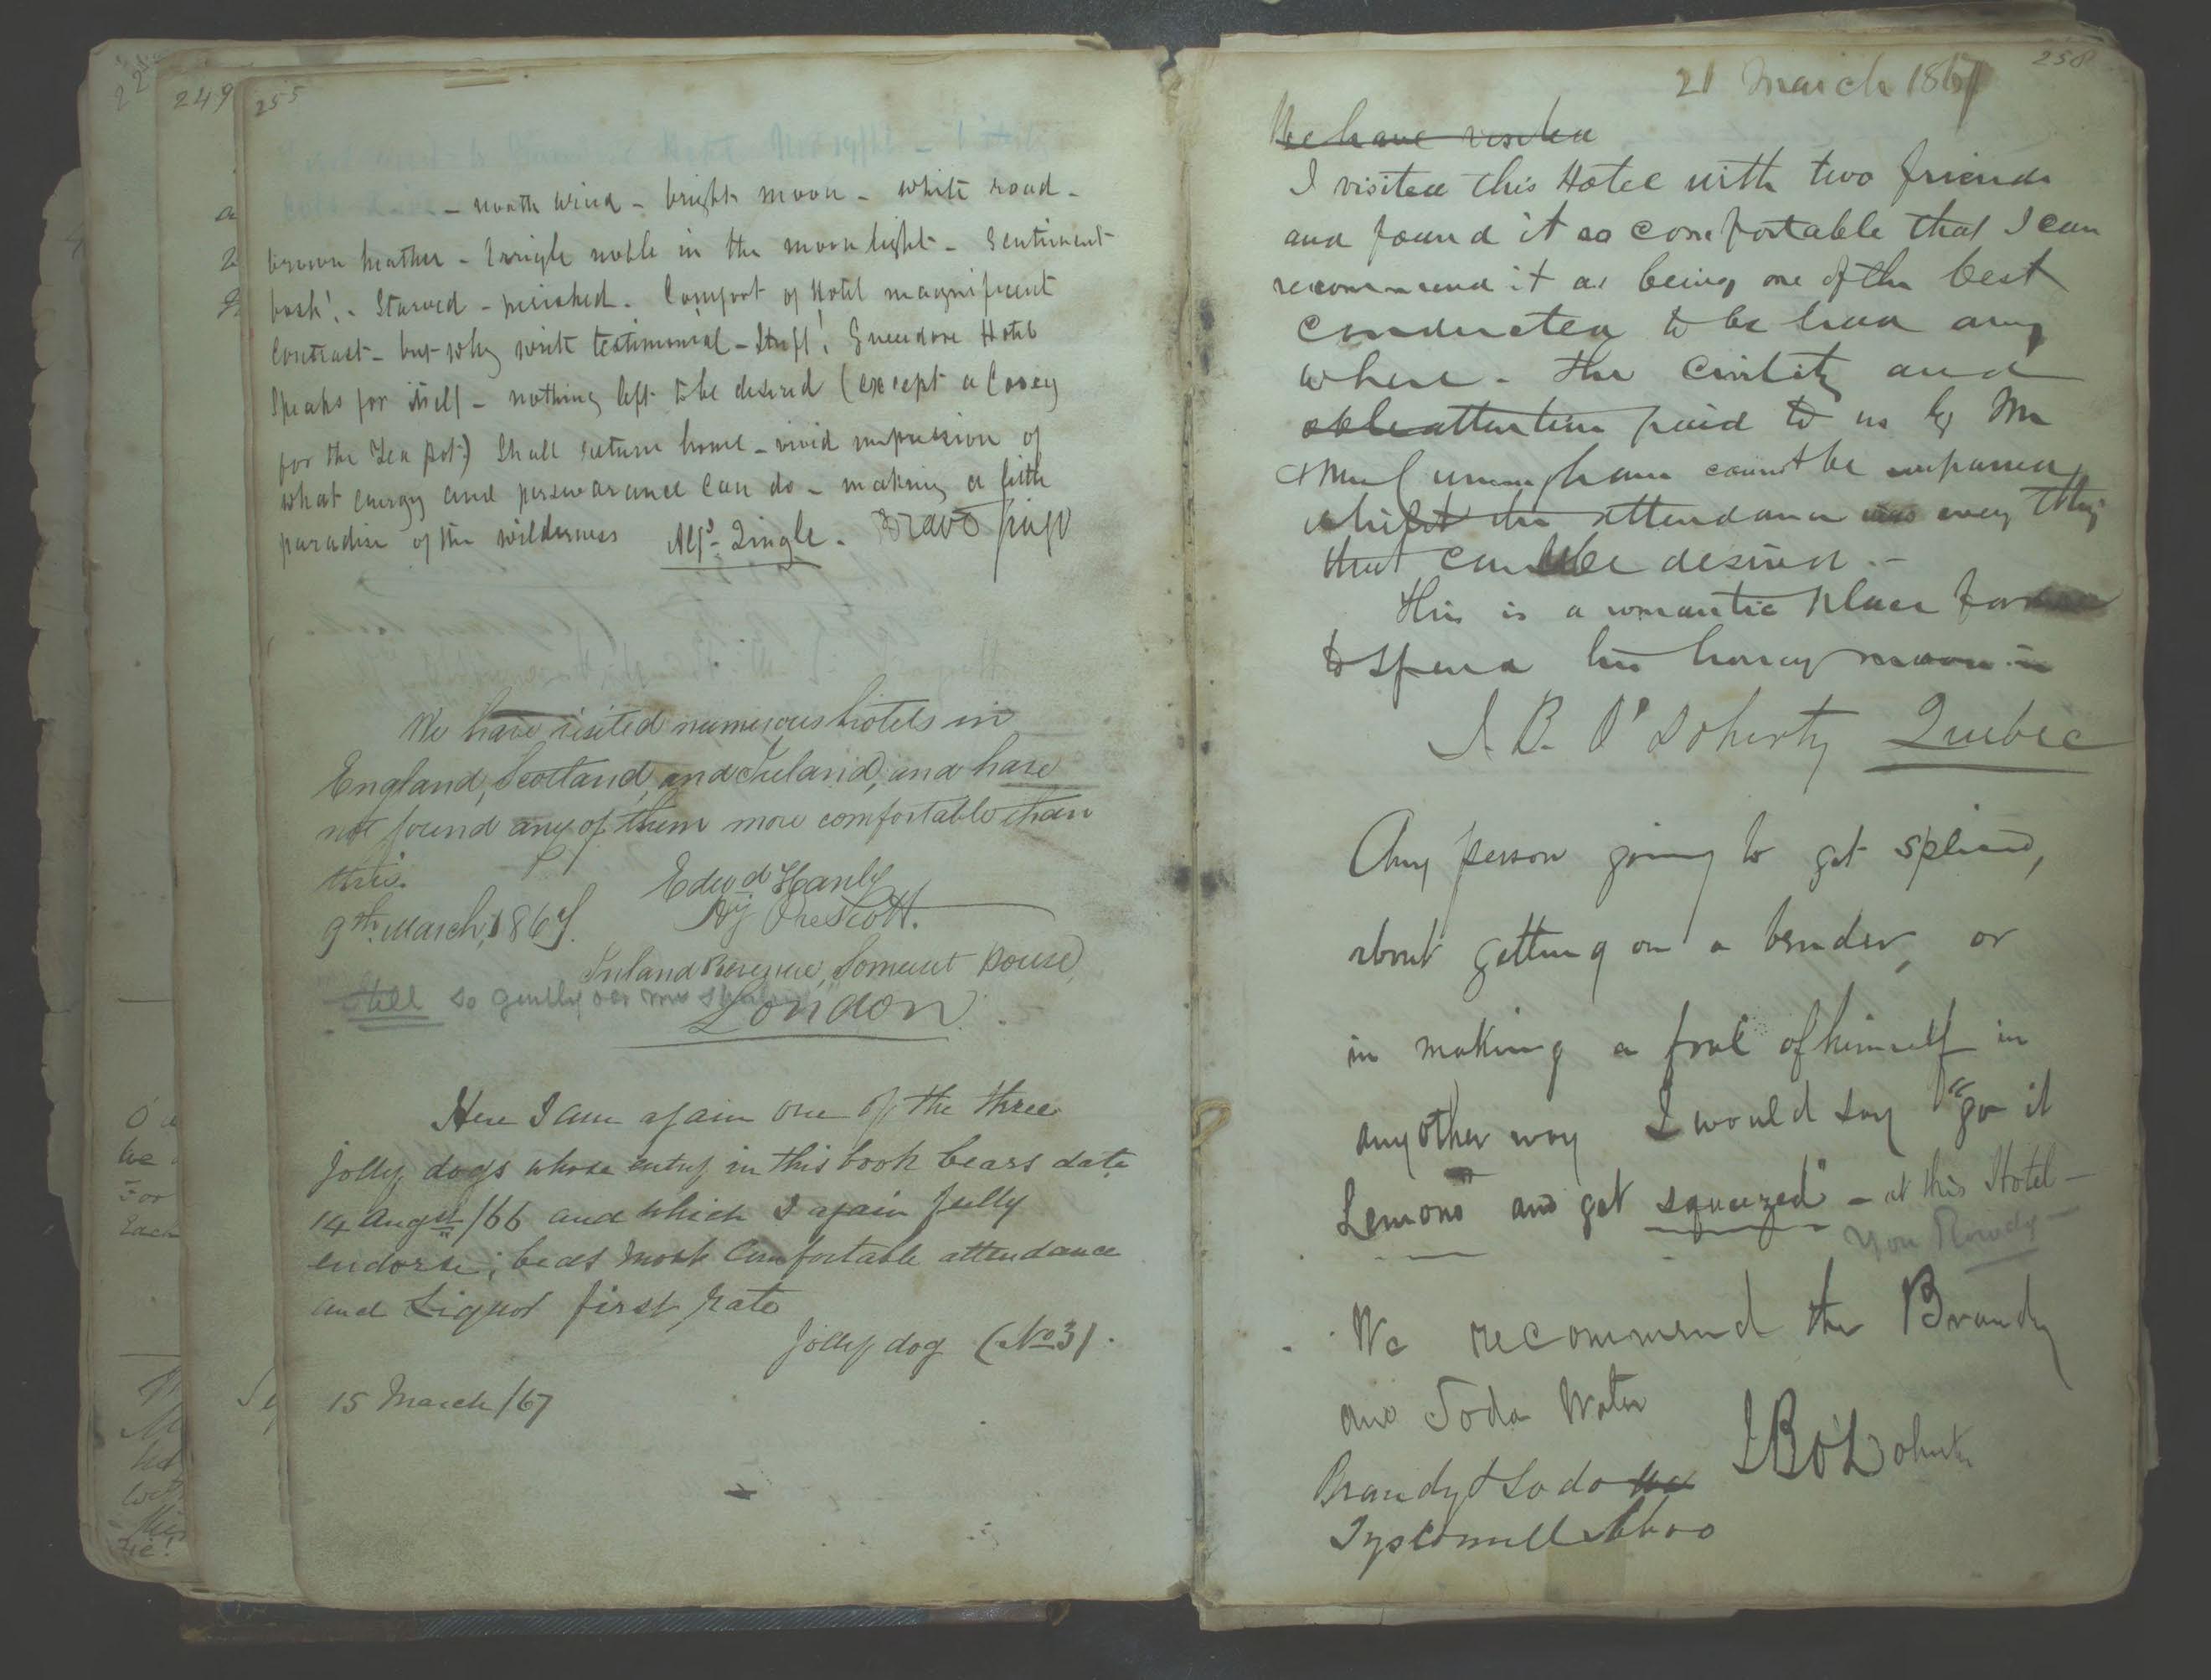 255
- north wind - bright moon - white road -
brown heather - Errigle noble in the moon light - Sentiment
bosh! - Starved - perished. Comfort of Hotel magnificent
Contrast - but why write testimonial - Stuff! Gweedore Hotel
Speaks for itself - nothing left to be desired (except a Cosey
for the Tea pot) Shall return home - vivid impression of
what energy and perseverance can do - making a little
paradise of the wilderness Alfd. Jingle. Bravo Jingo
We have visited numerous hotels in
England, Scotland, and Ireland, and have
not found any of them more comfortable than
this.
Edwd Hanly
Hy Prescott.
9th March, 1867.
Inland Revenue, Somerset House,
Still so gently oer me
London.
Here I am again one of the three
Jolly dogs whose entry in this book bears date
14 Augst /66 and which I again fully
endorse; beds most Comfortable attendance
and Liquor first rate
Jolly dog (No 3).
15 March /67
249
258
21 March 1867
We have visited
I visited this Hotel with two friends
and found it so comfortable that I can
recommend it as being one of the best
conducted to be had any
where. The civility and
attention paid to us by Mr
& Mrs Cunningham cannot be surpassed,
whilst the attendance was every thing
that can be desired. -
This is a romantic place for
to spend his honey moon in
J. B. O'Doherty Quebec
Any person going to get spliced,
about getting on a bender, or
in making a fool of himself in
any other way I would say "go it
Lemons and get squeezed" - at this Hotel -
You Rowdy -
We recommend the Brandy
and Soda Water
J B O'Doherty
Brandy & Soda wa
Tyrconnell Aboo